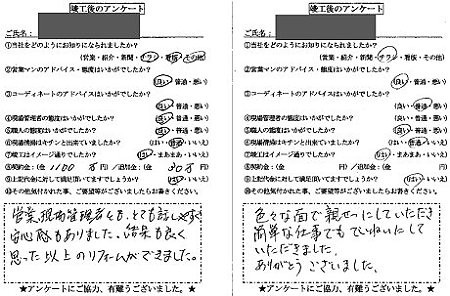 竣工後のアンケート
ご氏名:
①当社をどのようにお知りになられましたか?
(営業・紹介・新聞・チラシ・看板・その他)
②営業マンのアドバイス・態度はいかがでしたか?
(良い・普通・悪い)
③コーディネートのアドバイスはいかがでしたか?
(良い・普通・悪い)
④現場管理者の態度はいかがでしたか? (良い・普通・悪い)
⑤職人の態度はいかがでしたか? (良い・普通・悪い)
⑥現場清掃はキチンと出来ていましたか? (はい・普通・いいえ)
⑦竣工はイメージ通りでしたか? (はい・まあまあ・いいえ)
⑧契約金:(金 1100万 円)/追加金:(金 30万 円)
⑨上記代金に対して満足頂いてますでしょうか? (はい・普通・いいえ)
⑩その他気付かれた事、ご要望等がございましたらお書きください。
営業、現場管理者とも、とても話しやすく
安心感もありました。結果も良く
思った以上のリフォームができました。
★アンケートにご協力、有難うございました。★
竣工後のアンケート
ご氏名:
①当社をどのようにお知りになられましたか?
(営業・紹介・新聞・チラシ・看板・その他)
②営業マンのアドバイス・態度はいかがでしたか?
(良い・普通・悪い)
③コーディネートのアドバイスはいかがでしたか?
(良い・普通・悪い)
④現場管理者の態度はいかがでしたか? (良い・普通・悪い)
⑤職人の態度はいかがでしたか? (良い・普通・悪い)
⑥現場清掃はキチンと出来ていましたか? (はい・普通・いいえ)
⑦竣工はイメージ通りでしたか? (はい・まあまあ・いいえ)
⑧契約金:(金 円)/追加金:(金 円)
⑨上記代金に対して満足頂いてますでしょうか? (はい・普通・いいえ)
⑩その他気付かれた事、ご要望等がございましたらお書きください。
色々な面で親せつにしていただき
簡単な仕事でもていねいにして
いただきました。
ありがとうございました。
★アンケートにご協力、有難うございました。★